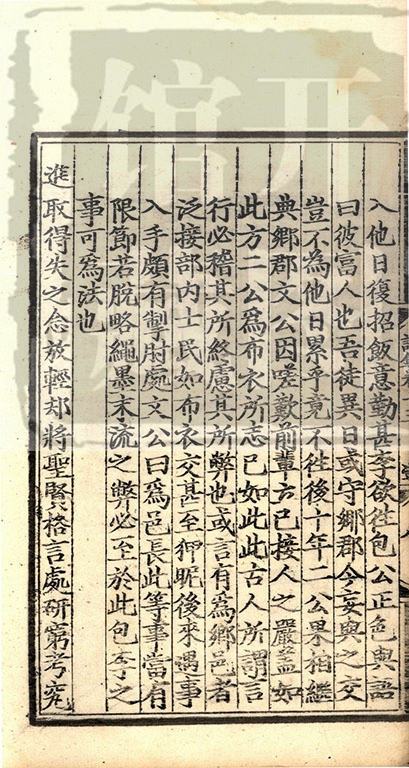 入他日復招飯意勤甚李欲徃包公正色與語
曰彼富人也吾徒異日或守鄉郡今妄與之交
豈不為他日累乎竟不徃後十年二公果相繼
典鄉郡文公因嗟歎前輩立己接人之嚴蓋如
此方二公爲布衣所志已如此此古人所謂言
行必稽其所終慮其所弊也或言有爲鄉邑者
泛接部内士民如布衣交甚至狎昵後來遇事
入手頗有掣肘處文公曰爲邑長此等事當有
限節若脫略繩墨末流之弊必至於此包李之
事可爲法也
進取得失之念放輕却將聖賢格言處研窮考究